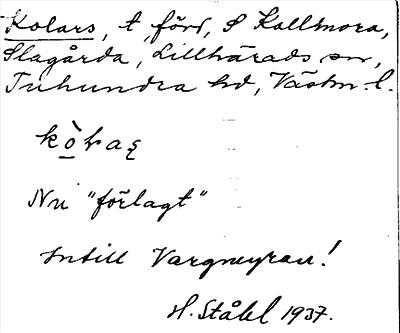 Kolars, t, förs, S Kallmora,
Slagårda, Lillhärads sn,
Tuhundra hd, Västm. l.
Nu "förlagt"
Intill Vargmyran!
H. Ståhl 1937.